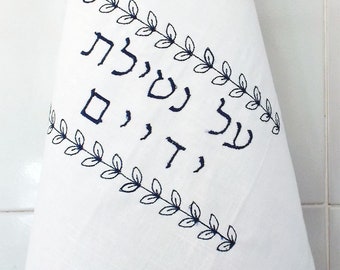 על נטילת
ידיים